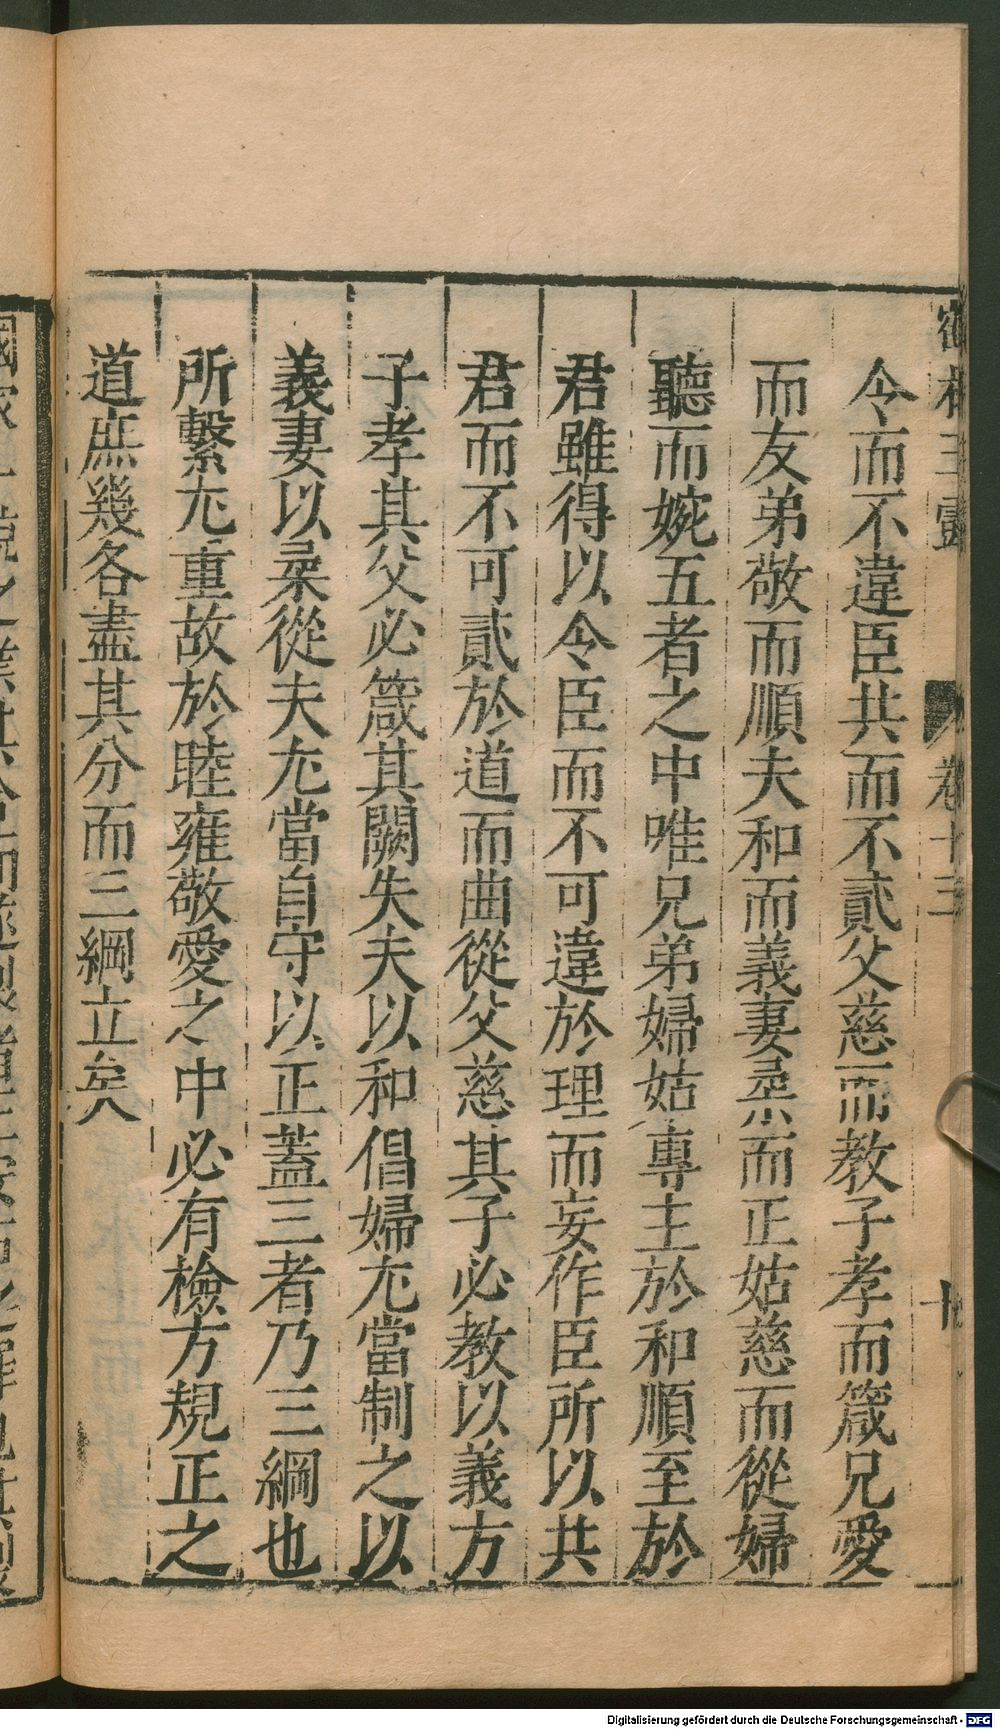 卷十三
令而不違臣共而不貳父慈而教子孝而箴兄愛
而友弟敬而順夫和而義妻柔而正姑慈而從婦
聽而婉五者之中唯兄弟婦姑專主於和順至於
君雖得以令臣而不可違於理而妄作臣所以共
君而不可貳於道而曲從父慈其子必教以義方
子孝其父必箴其闕失夫以和倡婦尤當制之以
義妻以柔從夫尤當自守以正蓋三者乃三綱也
所繫尤重故於睦雍敬愛之中必有檢方規正之
道庶幾各盡其分而三綱立矣
Digitalisierung gefördert durch die Deutsche Forschungsgemeinschaft - DFG